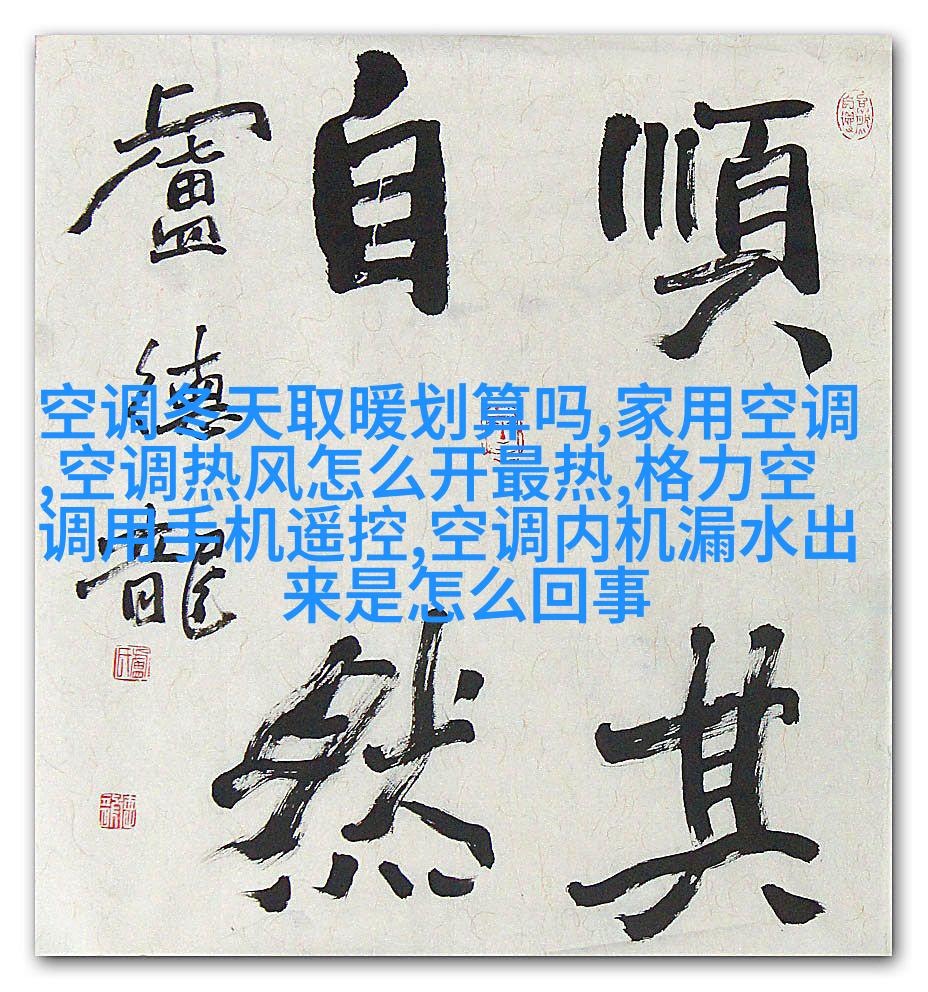 順其
自然
盧德龍
空调冬天取暖划算吗,家用空调
,空调热风怎么开最热,格力空
调用手机遥控,空调内机漏水出
来是怎么回事